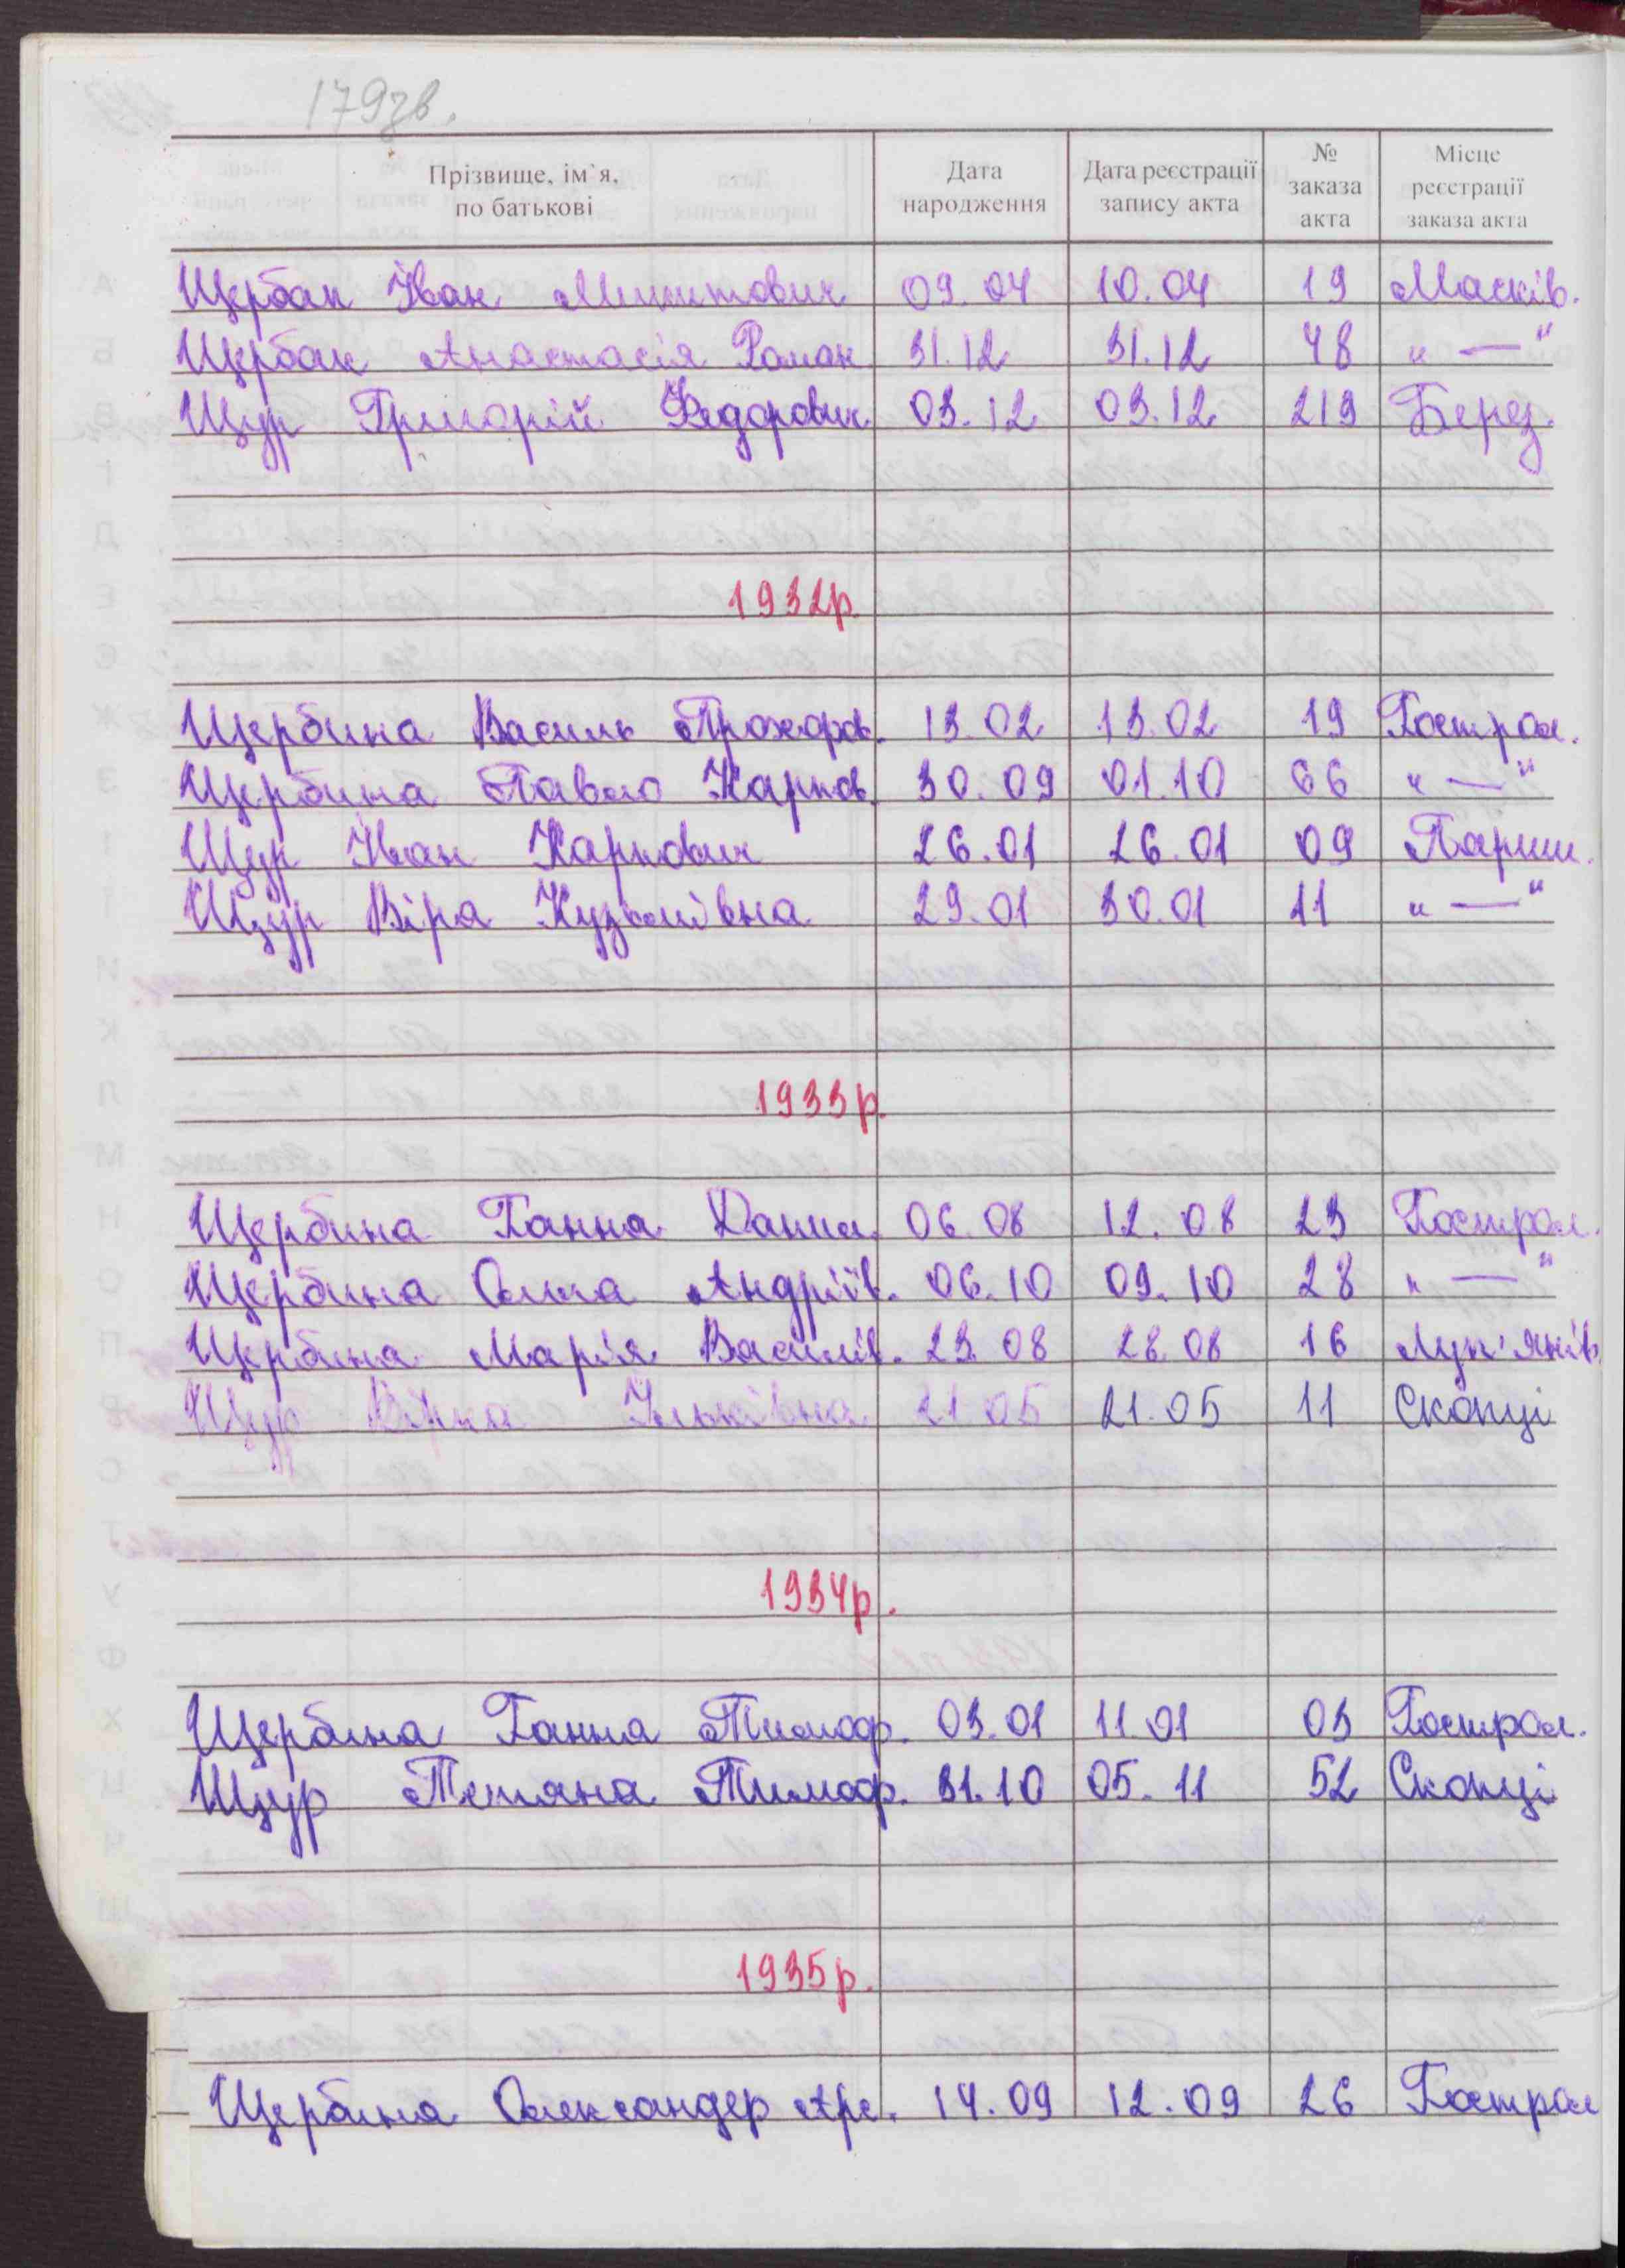 179зв.
Прізвище, ім`я, по батькові | Дата народження | Дата реєстрації запису акта | № заказа акта | Місце реєстрації заказа акта
Щербак Іван Микитович 09.04 10.04 19 Масків.
Щербак Анастасія Роман 31.12 31.12 48 " — "
Щур Григорій Федорович 03.12 03.12 219 Берез.
1932р
Щербина Василь Прохоров. 13.02 13.02 19 Гострол.
Щербина Павло Карпов. 30.09 01.10 66 " — "
Щур Іван Карпович 26.01 26.01 09 Париш.
Щур Віра Кузьмівна 29.01 30.01 11 " — "
1933р.
Щербина Ганна Данил. 06.08 12.08 23 Гострол.
Щербина Ольга Андріїв. 06.10 09.10 28 " — "
Щербина Марія Василів. 23.08 28.08 16 Лук'янів
Щур Ільківна 21.05 21.05 11 Скопці
1934р.
Щербина Ганна Тимоф. 03.01 11.01 03 Гострол.
Щур Тетяна Тимоф. 31.10 05.11 52 Скопці
1935р.
Щербина Олександер Арс. 14.09 12.09 26 Гострол